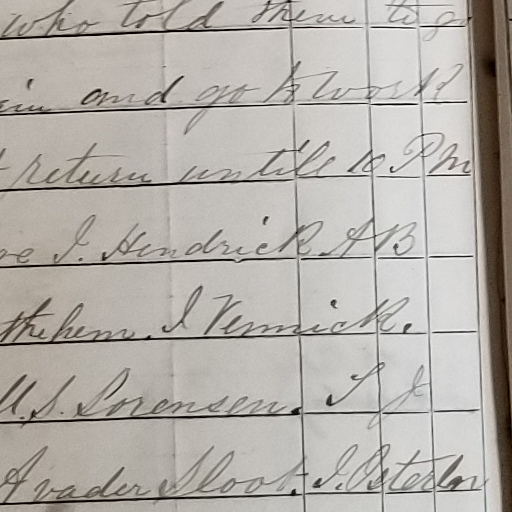 who told them to go
in and go to work
return untill 10 PM
J. Hendrick A B
J Vennick.
M. S. Sorensen. S J
A vader Sloot. J.